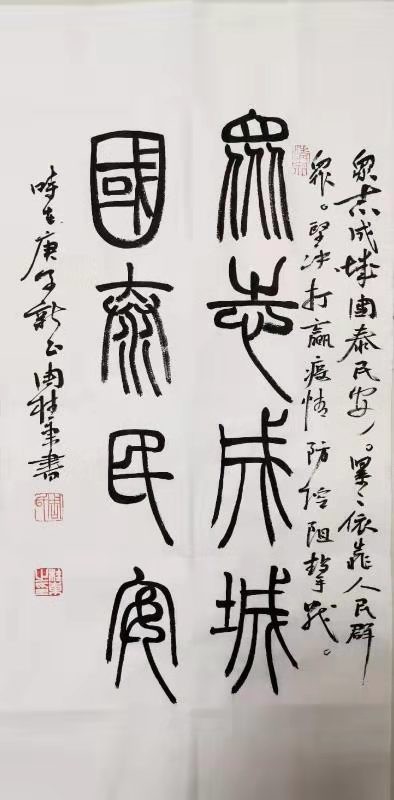 眾志成城國泰民安。緊緊依靠人民群
眾。坚决打赢疫情防控阻擊战。
眾志成城
國泰民安
時在庚子新正周桂東書